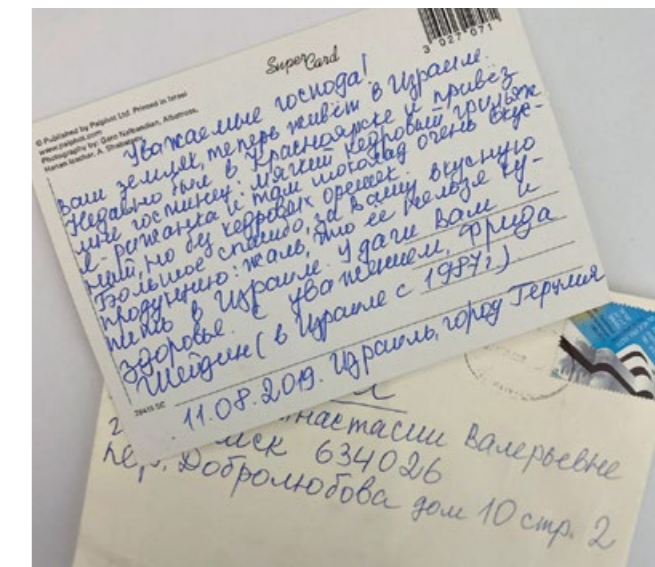 Super Card
3 027071
© Published by Palphot Ltd. Printed in Israel
www.palphot.com
Photography by: Garo Nalbandian, Albatross,
Hanan Isachar, A. Shabataev.
Уважаемые господа!
Ваш земляк, теперь живёт в Израиле.
Недавно был в Красноярске и привёз
мне гостинец: мягкий кедровый грильяж
Я - рижанка и там шоколад очень вкус-
ный, но без кедровых орешек.
Большое спасибо, за Вашу вкусную
продукцию: жаль, что её нельзя ку-
пить в Израиле. Удачи Вам и
здоровья. С уважением, Фрида
Шейдин (в Израиле с 1987г.)
11.08.2019. Израиль, город Герцлия
Анастасии Валерьевне
634026
пер. Добролюбова дом 10 стр. 2